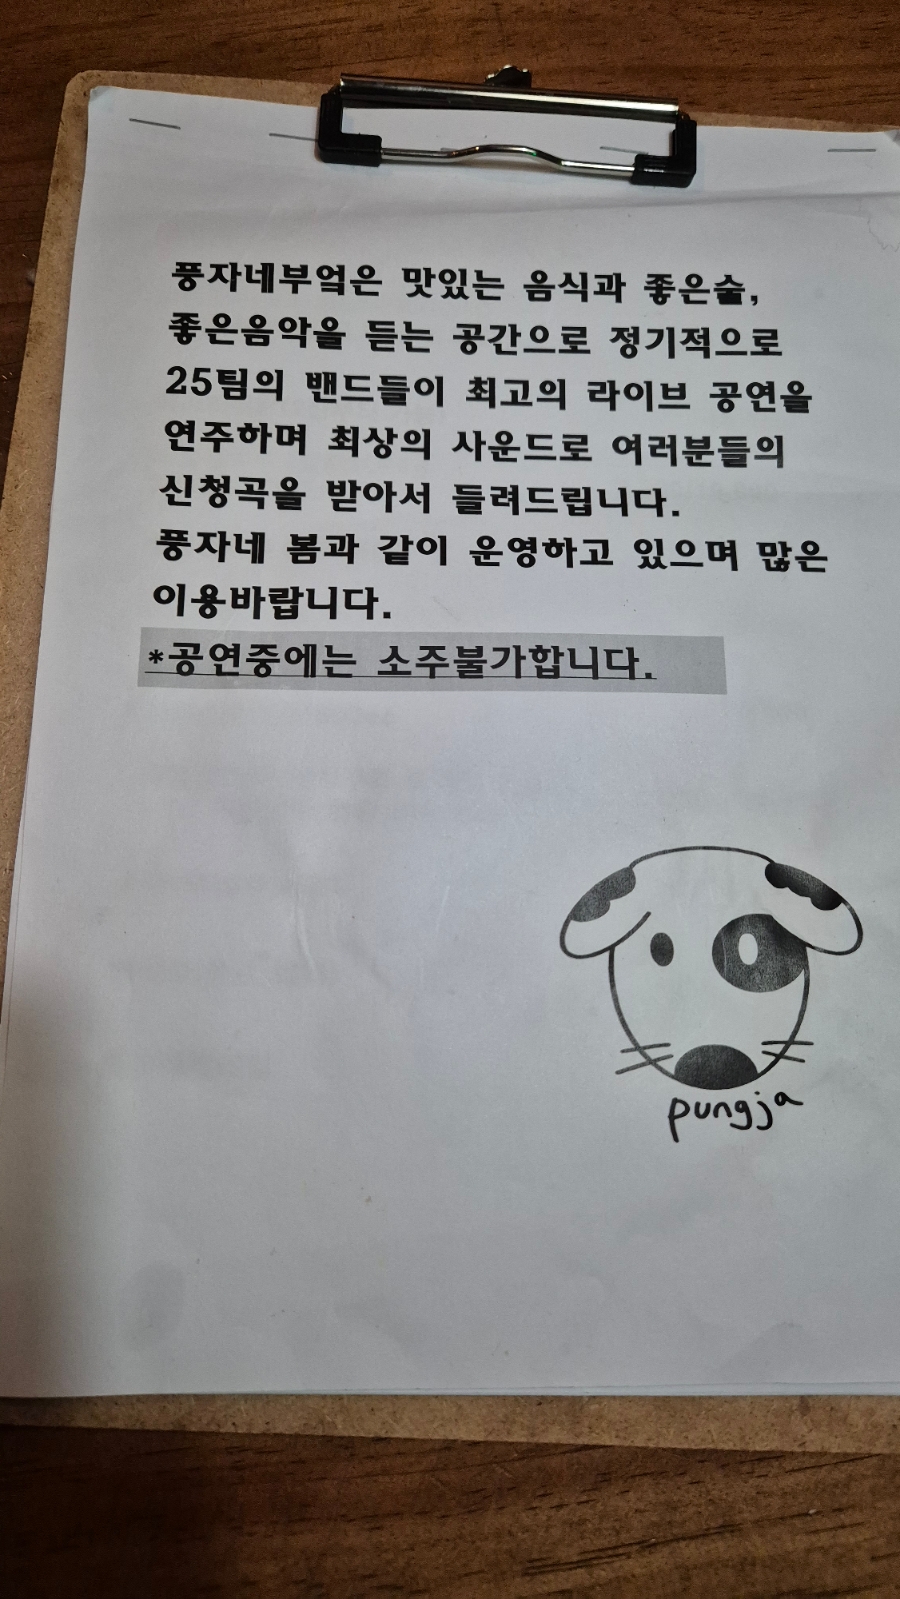 풍자네부엌은 맛있는 음식과 좋은술,
좋은음악을 듣는 공간으로 정기적으로
25팀의 밴드들이 최고의 라이브 공연을
연주하며 최상의 사운드로 여러분들의
신청곡을 받아서 들려드립니다.
풍자네 봄과 같이 운영하고 있으며 많은
이용바랍니다.
*공연중에는 소주불가합니다.
pungja